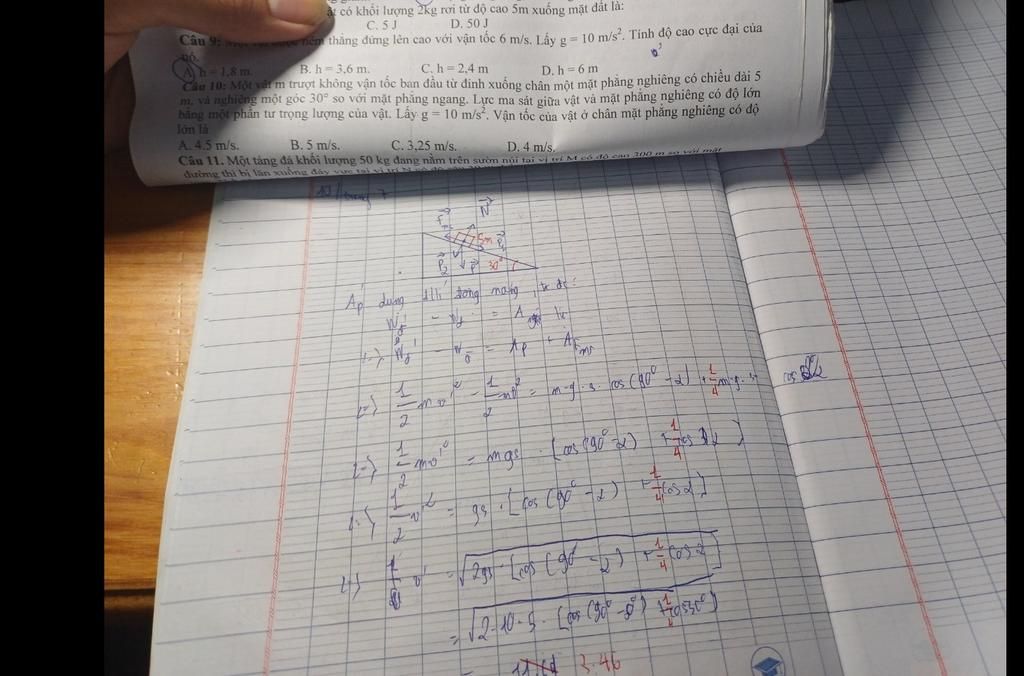 ật có khối lượng 2kg rơi từ độ cao 5m xuống mặt đất là:
C. 5 J D. 50 J
Câu 9: ném thẳng đứng lên cao với vận tốc 6 m/s. Lấy g = 10 m/s². Tính độ cao cực đại của
nó.
A. h = 1,8 m. B. h = 3,6 m. C. h = 2,4 m D. h = 6 m
Câu 10: Một vật m trượt không vận tốc ban đầu từ đỉnh xuống chân một mặt phẳng nghiêng có chiều dài 5
m, và nghiêng một góc 30° so với mặt phẳng ngang. Lực ma sát giữa vật và mặt phẳng nghiêng có độ lớn
bằng một phần tư trọng lượng của vật. Lấy g = 10 m/s². Vận tốc của vật ở chân mặt phẳng nghiêng có độ
lớn là
A. 4.5 m/s. B. 5 m/s. C. 3,25 m/s. D. 4 m/s.
Câu 11. Một tảng đá khối lượng 50 kg đang nằm trên sườn núi tại vị trí M có độ cao 300 m so với mặt
đường thì bị lăn xuống đáy vực tại vị trí N
N
5m
P₂ P 30°
Áp dụng động năng, ta có:
Wđ' - Wđ =
Wđ' - Wđ = Ap + AFms
1/2 mv'² - 1/2 mv² = m·g·s cos(90° - α) + 1/4 m·g·s cos
1/2 mv'² = mgs · [cos(90° - α) + 1/4 cos α]
1/2 v'² = gs · [cos(90° - α) + 1/4 cos α]
v' = √2gs · [cos(90° - α) + 1/4 cos α]
= √2·10·5 · [cos(90° - 30°) + 1/4 cos30°]
3.46